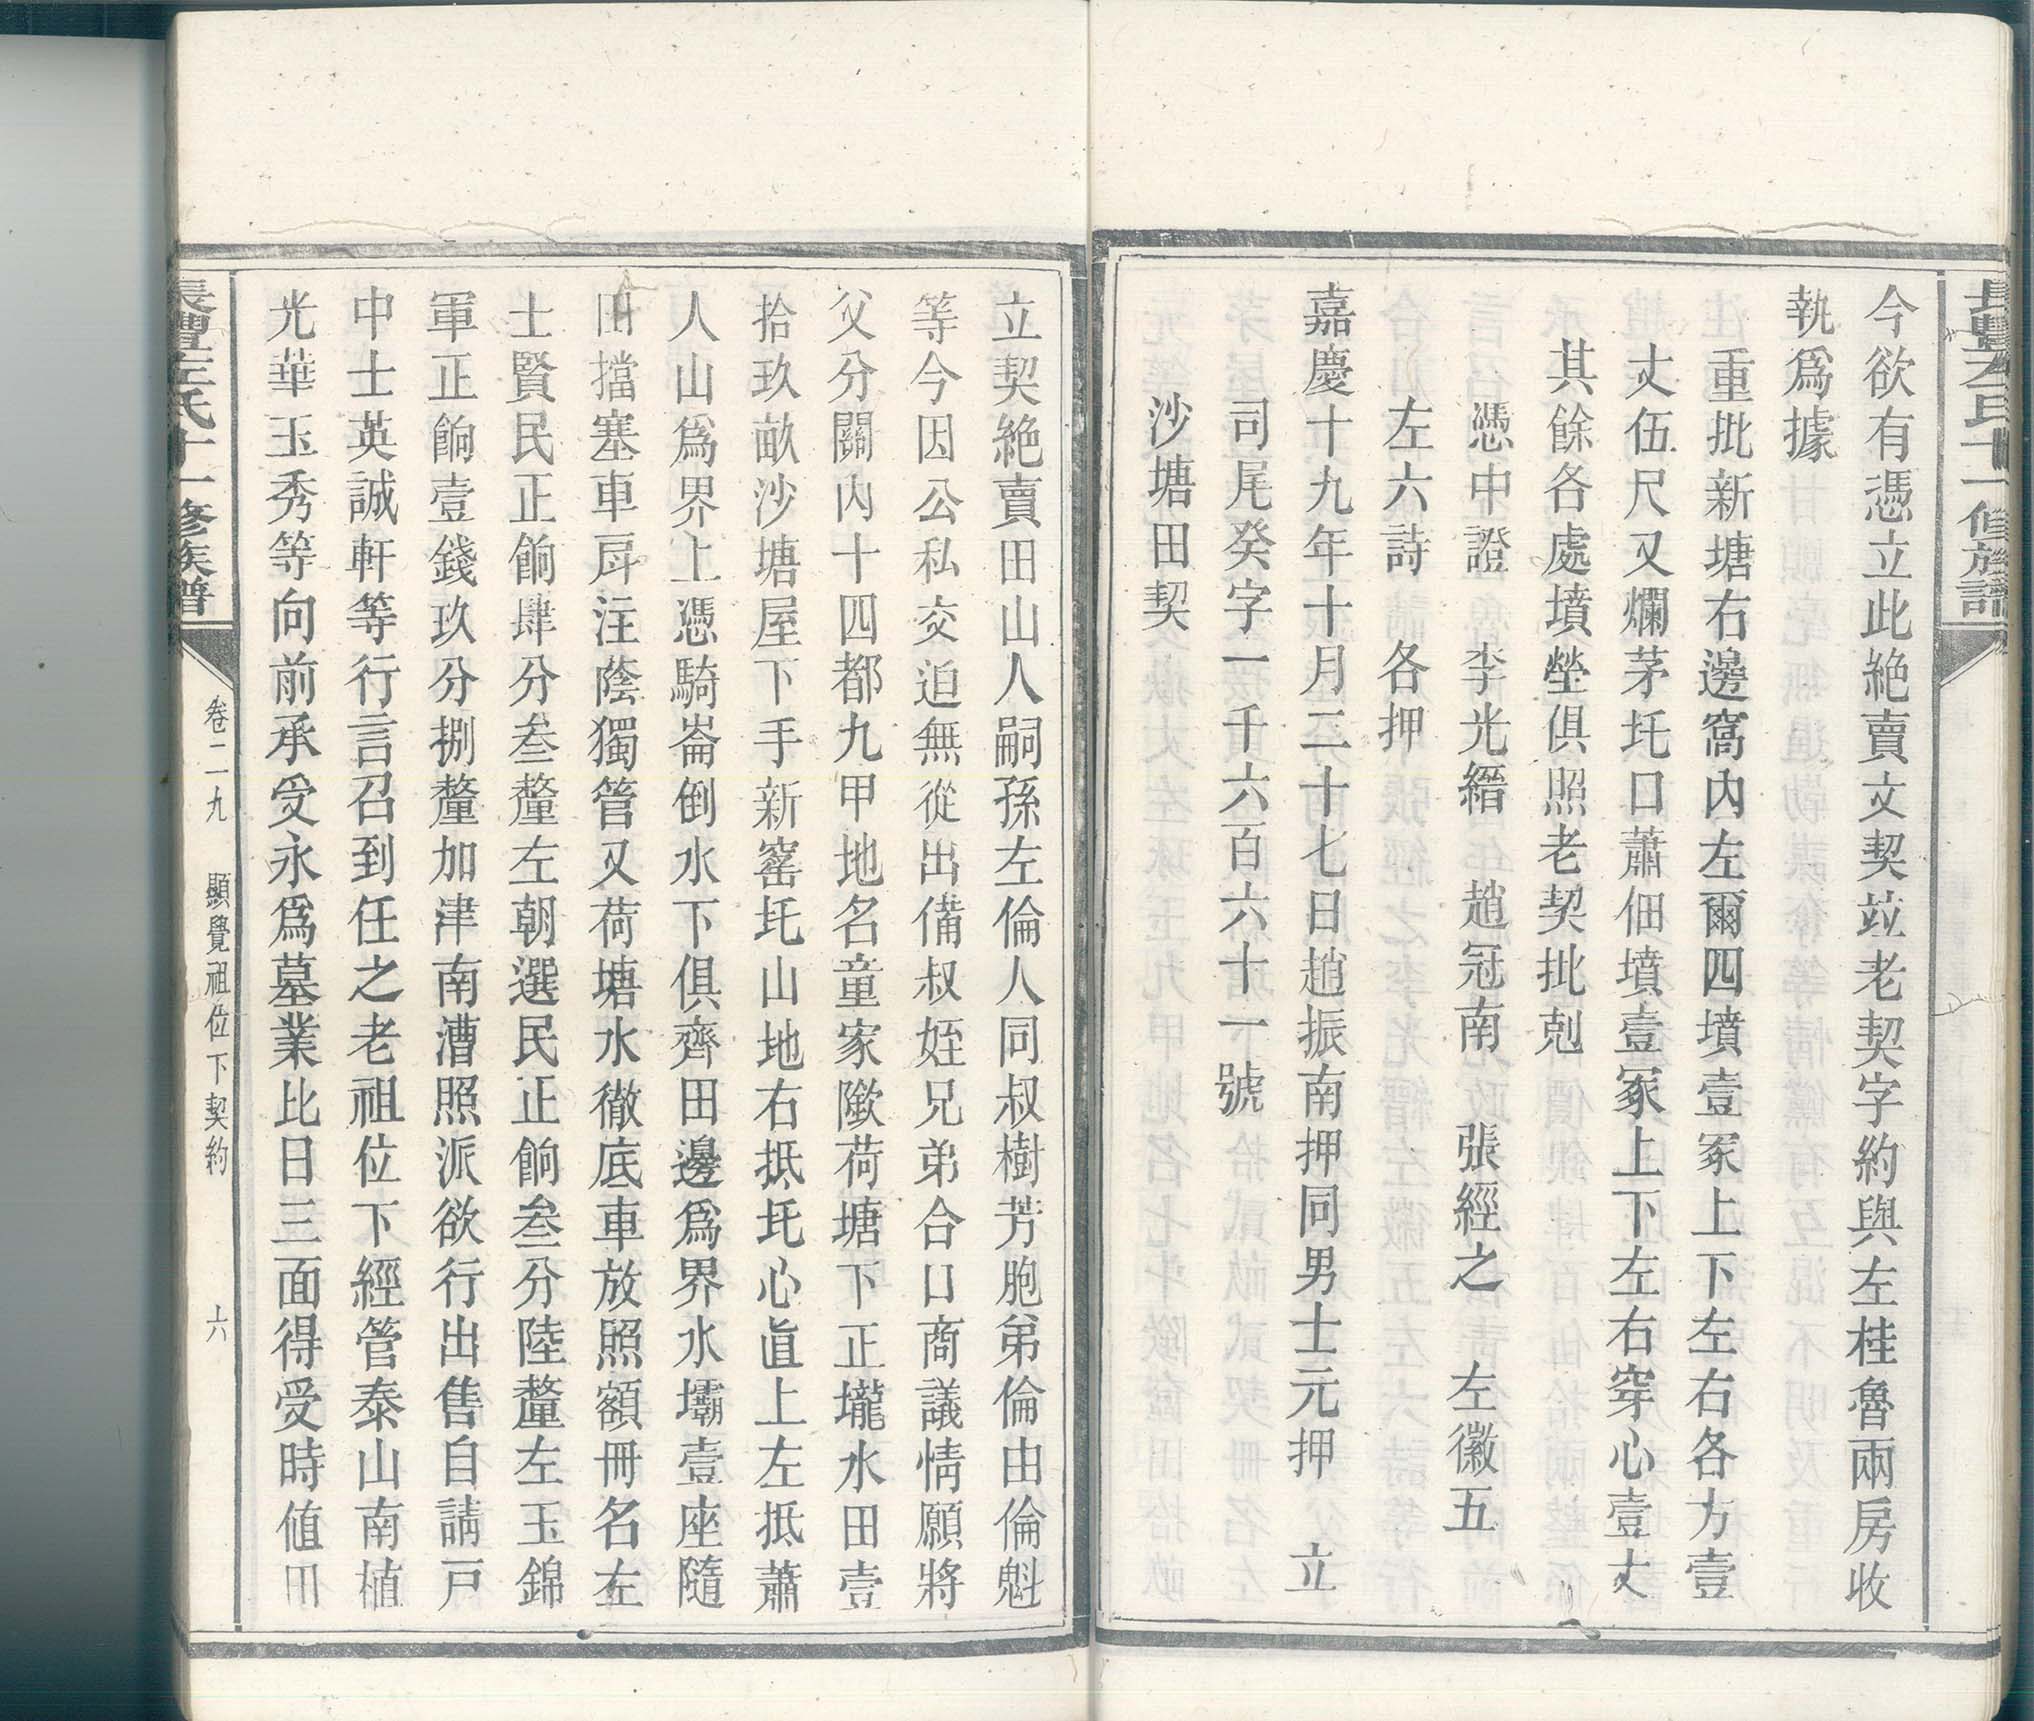 長豐左氏十一修族譜
今欲有憑立此絶賣文契竝老契字約與左桂魯兩房收
執爲據
重批新塘右邊窩內左爾四墳壹冢上下左右各方壹
丈伍尺又爛茅圫口蕭佃墳壹冢上下左右穿心壹丈
其餘各處墳塋俱照老契批剋
憑中證 李光縉 趙冠南 張經之 左徽五
左六詩 各押
嘉慶十九年十月二十七日趙振南押同男士元押 立
司尾癸字一千六百六十一號
沙塘田契
立契絶賣田山人嗣孫左倫人同叔樹芳胞弟倫由倫魁
等今因公私交迫無從出備叔姪兄弟合口商議情願將
父分關內十四都九甲地名童家隞荷塘下正壠水田壹
拾玖畝沙塘屋下手新窰圫山地右抵圫心直上左抵蕭
人山爲界上憑騎崙倒水下俱齊田邊爲界水壩壹座隨
田擋塞車戽注蔭獨管又荷塘水徹底車放照額冊名左
士賢民正餉肆分叁釐左朝選民正餉叁分陸釐左玉錦
軍正餉壹錢玖分捌釐加津南漕照派欲行出售自請戶
中士英誠軒等行言召到任之老祖位下經管泰山南植
光華玉秀等向前承受永爲墓業比日三面得受時值田
長豐左氏十一修族譜
卷二九 顯覺祖位下契約 六